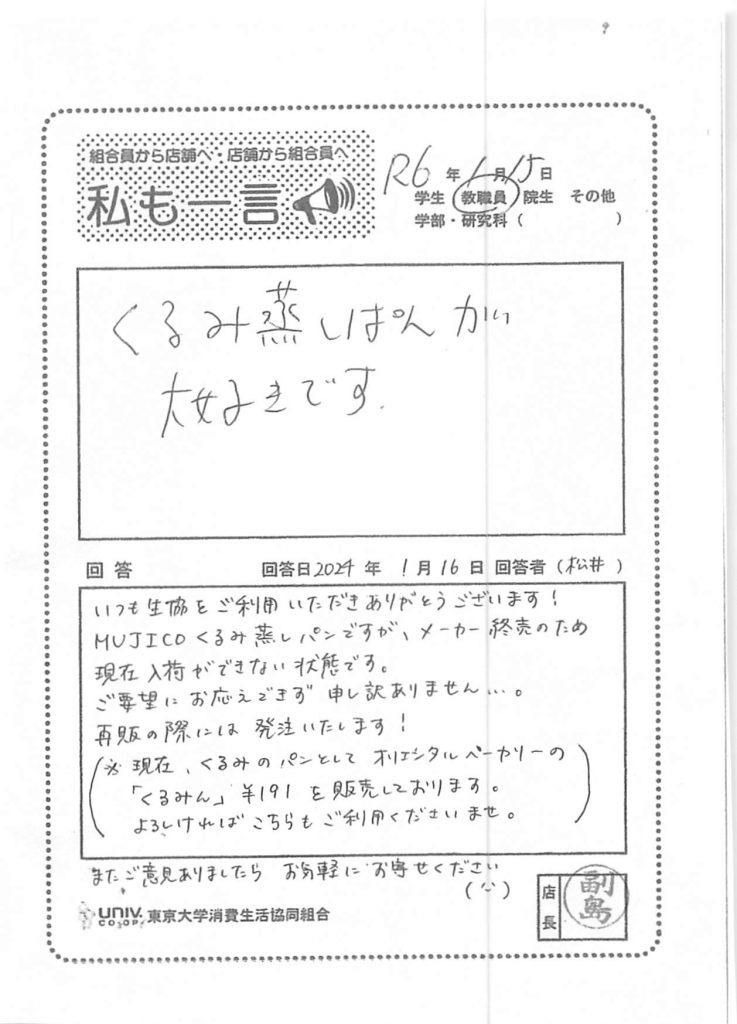 組合員から店舗へ・店舗から組合員へ
私も一言
R6年1月15日
学生 教職員 院生 その他
学部・研究科（ ）
くるみ蒸しぱんが
大好きです.
回答 回答日2024年 1月16日 回答者（松井）
いつも生協をご利用いただきありがとうございます！
MUJICOくるみ蒸しパンですが、メーカー終売のため
現在入荷ができない状態です。
ご要望にお応えできず 申し訳ありません…。
再販の際には 発注いたします！
（※現在、くるみのパンとして オリエンタルベーカリーの
「くるみん」¥191 を販売しております。
よろしければこちらもご利用くださいませ。）
またご意見ありましたら お気軽に お寄せください
UNIV. CO-OP 東京大学消費生活協同組合
店長
副島